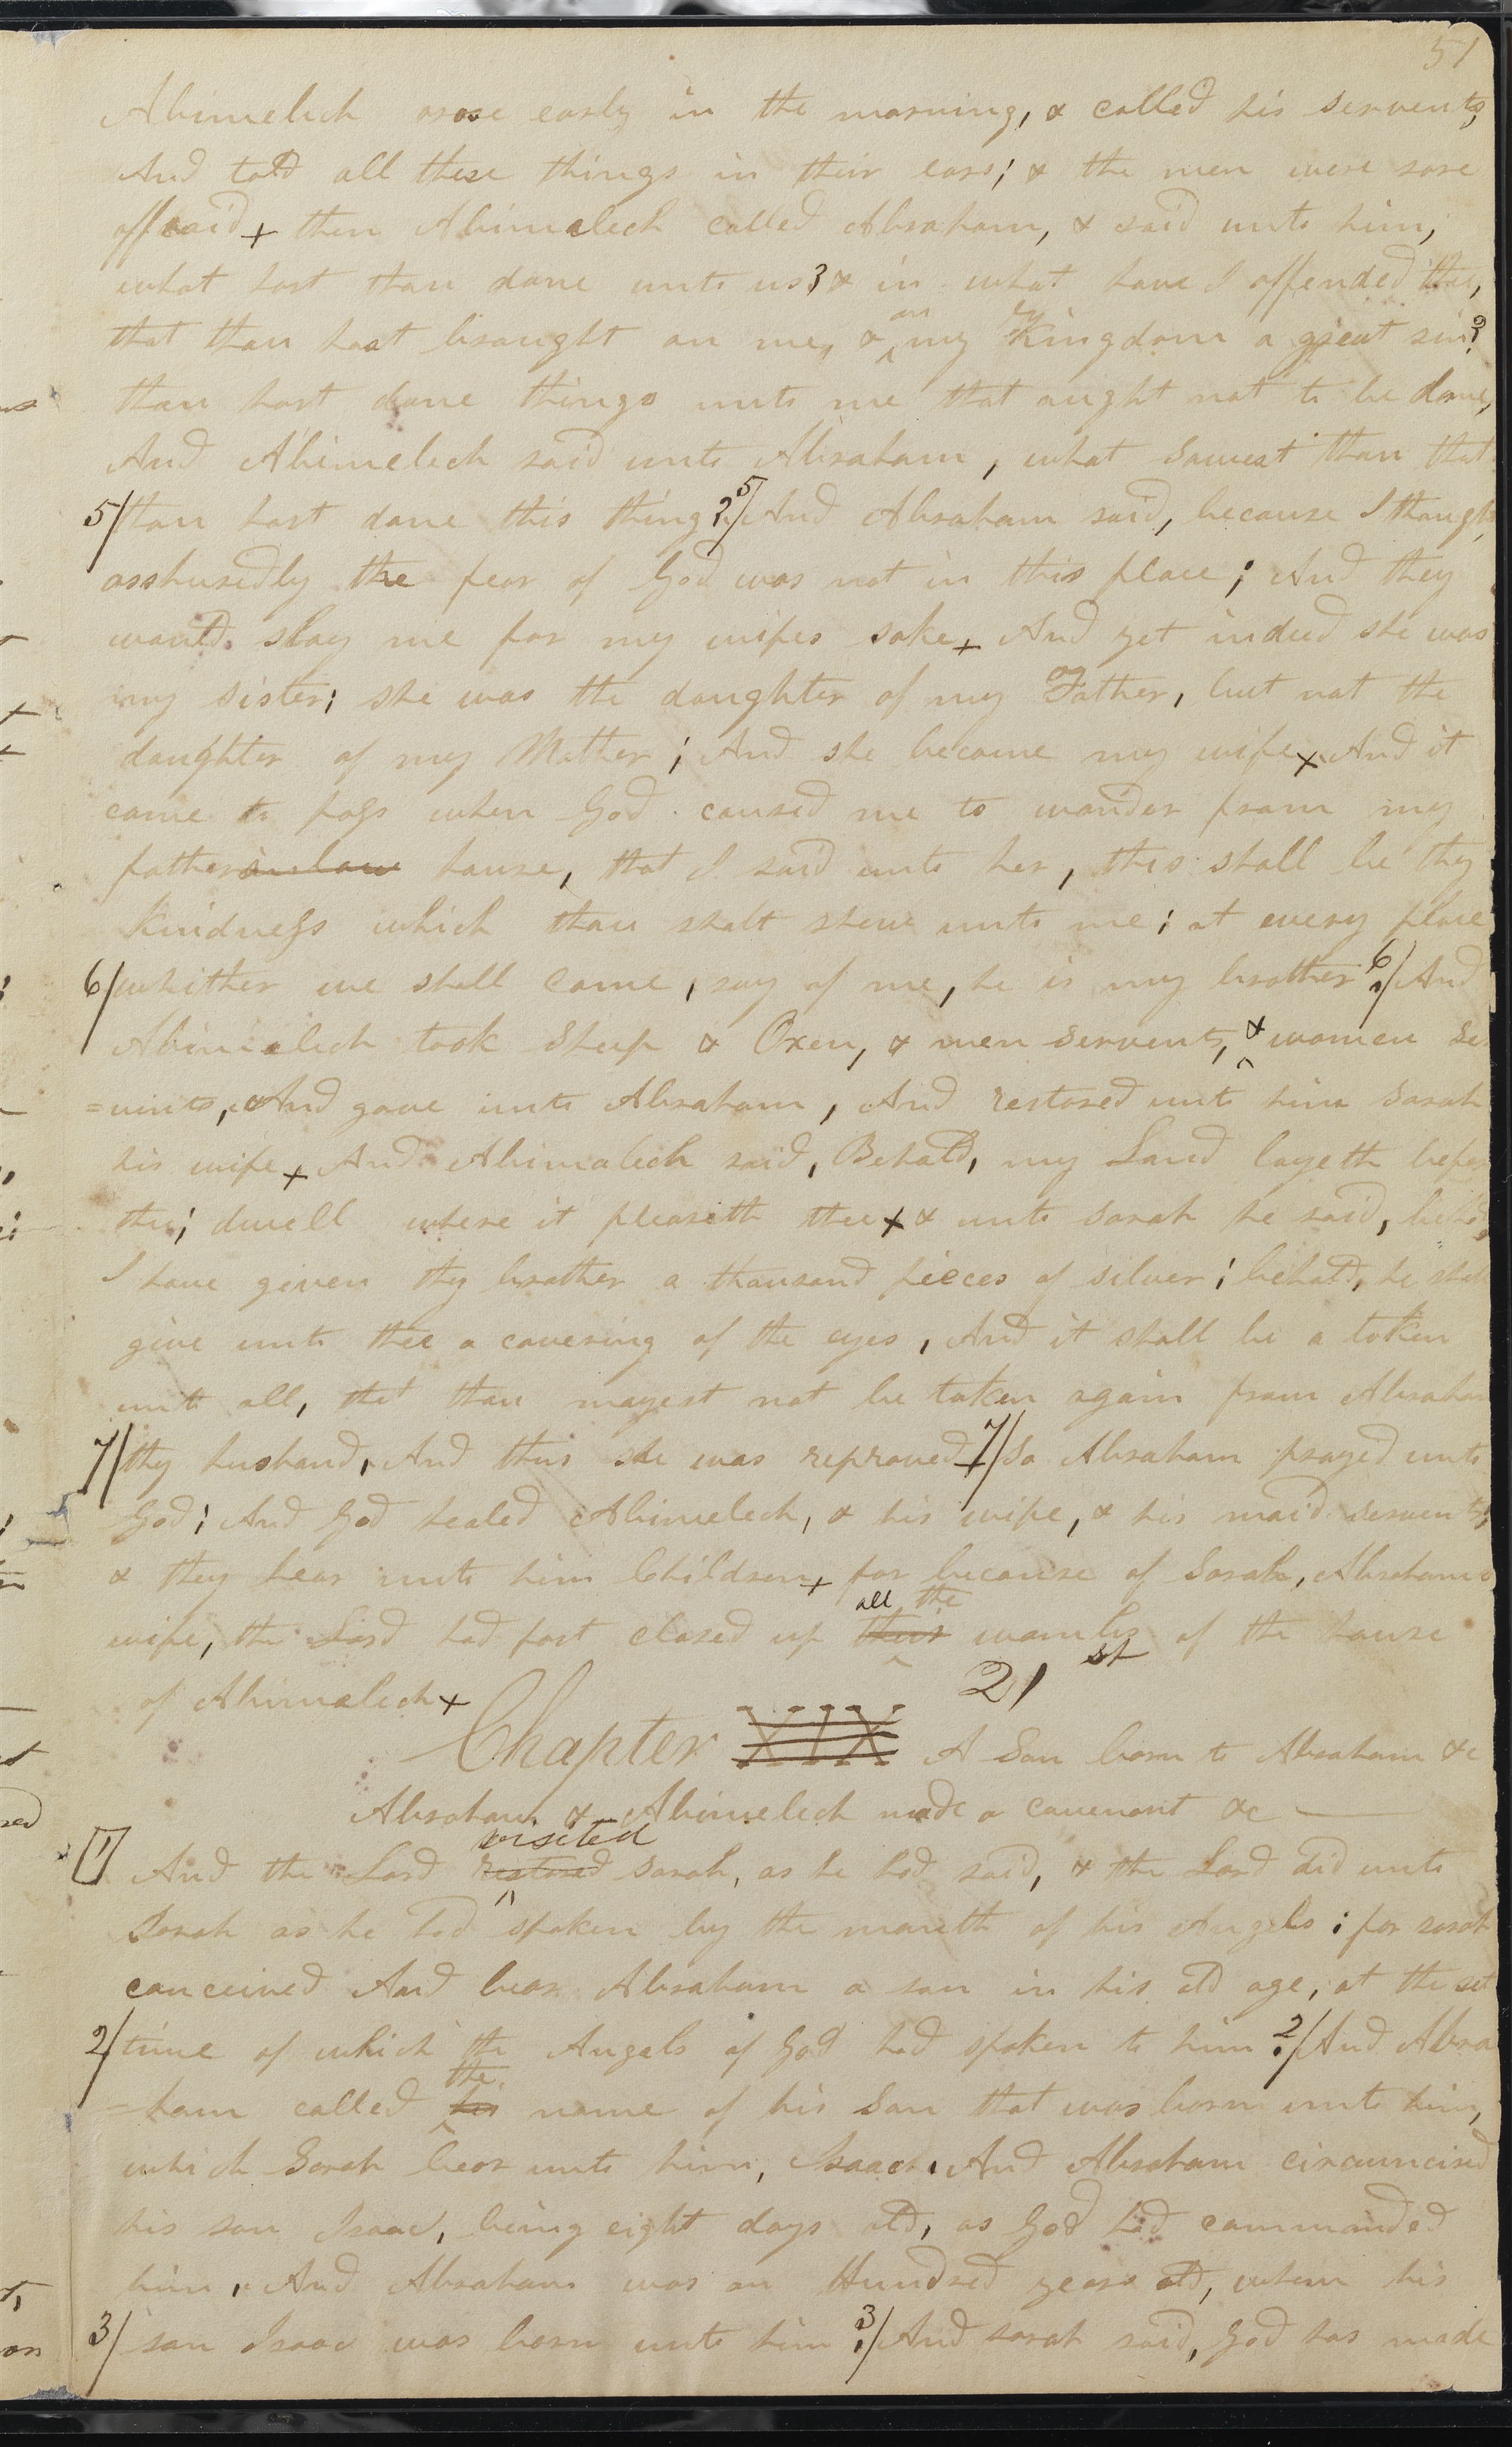 51
Abimelech arose early in the morning, & called his servents,
And told all these things in their ears; & the men were sore
affraid + then Abimelech called Abraham, & said unto him,
what hast thou done unto us? & in what have I offended thee,
that thou hast brought on me, & on my Kingdom a great sin?
thou hast done things unto me that ought not to be done,
And Abimelech said unto Abraham, what sawest thou that
5/ thou hast done this thing? 5/ And Abraham said, because I though
asshuredly the fear of God was not in this place; And they
would slay me for my wifes sake + And yet indeed she was
my sister; she was the daughter of my Father, but not the
daughter of my Mother; And she became my wife + And it
came to pass when God caused me to wander from my
father in law house, that I said unto her, this shall be thy
kindness which thou shalt shew unto me; at every place
6/ whither we shall come, say of me, he is my brother. 6/ And
Abimelech took Sheep & Oxen, & men servents, & women se
=vents, And gave unto Abraham, And restored unto him Sarah
his wife + And Abimelech said, Behold, my Land layeth before
thee; dwell where it pleaseth thee + & unto Sarah he said, behold,
I have given thy brother a thousand pieces of silver; behold, he shall
give unto thee a covering of the eyes, And it shall be a token
unto all, that thou mayest not be taken again from Abraham
7/ thy husband, And thus she was reproved + 7/ So Abraham prayed unto
God; And God healed Abimelech, & his wife, & his maid servents,
& they bear unto him Children + for because of Sarah, Abrahams
wife, the Lord had fast closed up their all the wombs of the house
of Abimelech +
Chapter XIX 21st A Son born to Abraham &c
Abraham & Abimelech made a covenant &c
1 And the Lord restored visited Sarah, as he had said, & the Lord did unto
Sarah as he had spoken by the mouth of his Angels; for sarah
conceived And bear Abraham a son in his old age, at the set
2/ time of which the Angels of God had spoken to him. 2/ And Abra
=ham called his the name of his Son that was born unto him,
which Sarah bear unto him, Isaac. And Abraham circumcised
his son Isaac, being eight days old, as God had commanded
him, And Abraham was an Hundred years old, when his
3/ son Isaac was born unto him. 3/ And sarah said, God has made